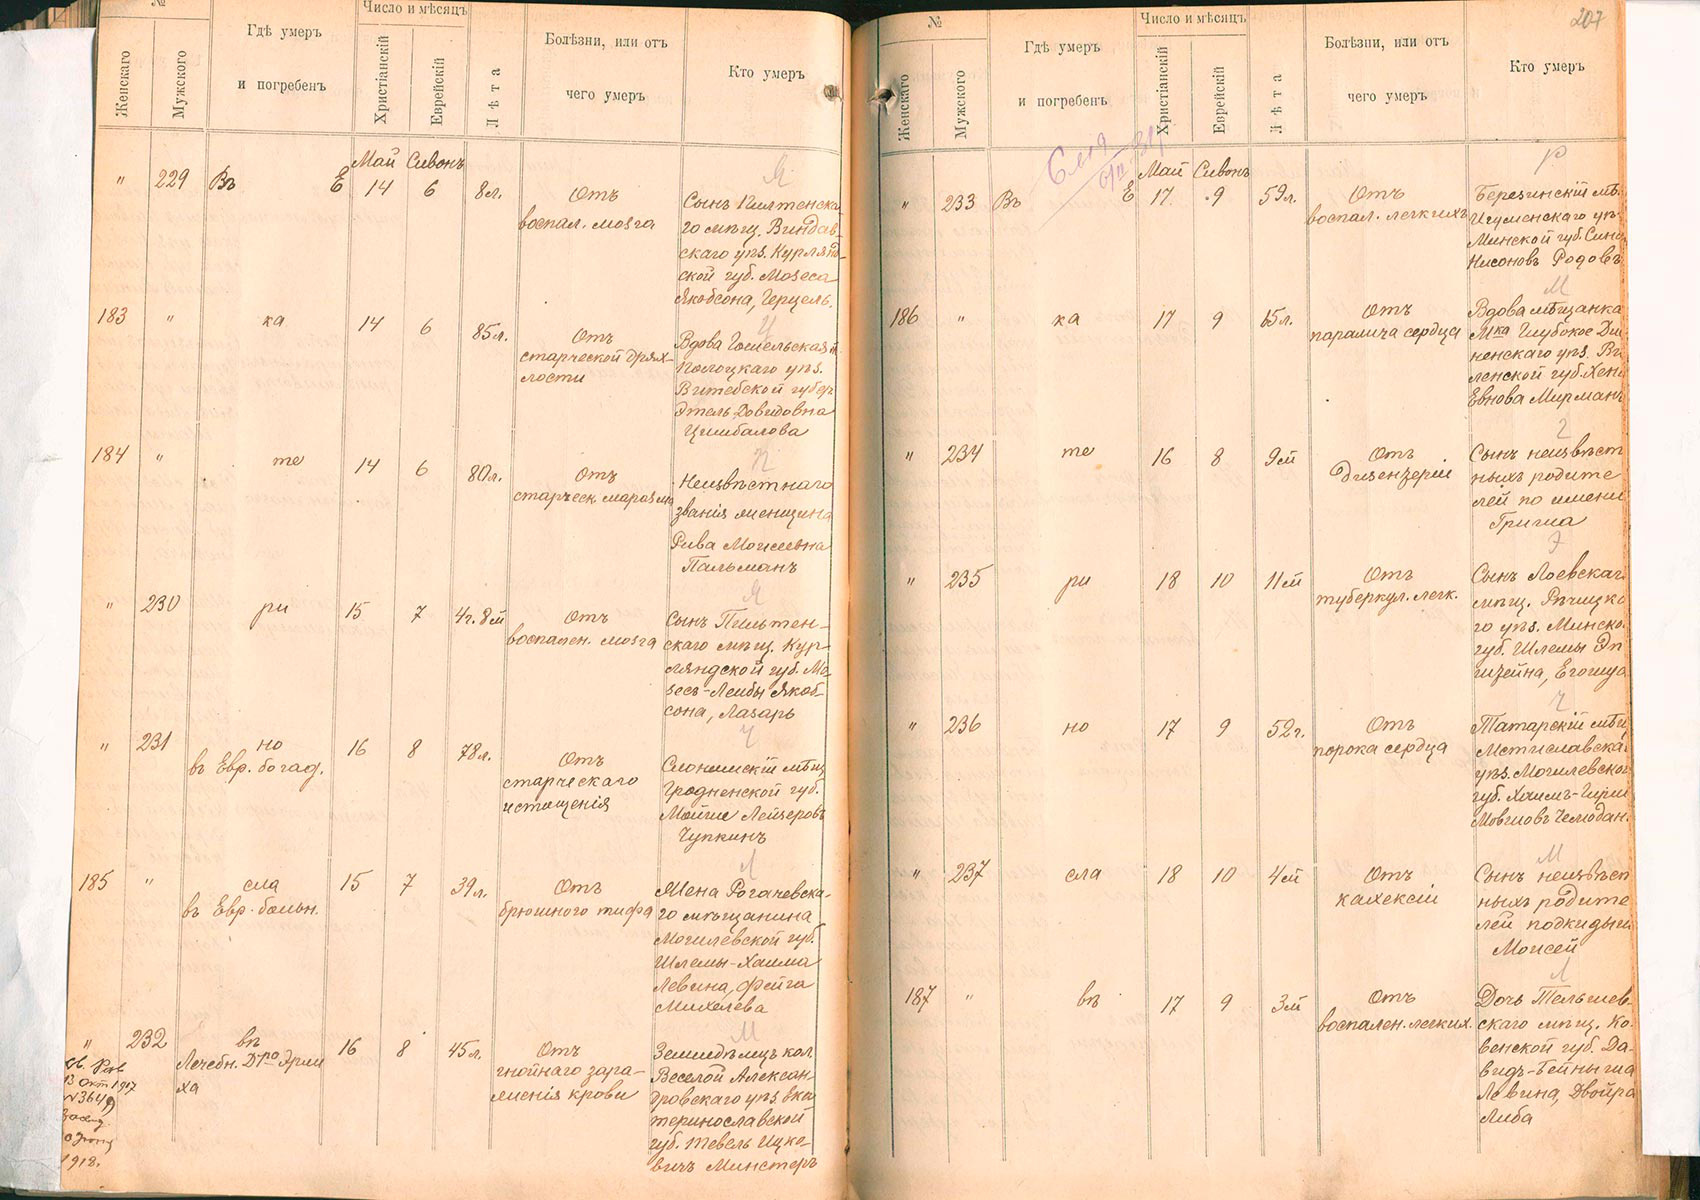 №
Женскаго
Мужского
Гдѣ умеръ
и погребенъ
Число и мѣсяцъ
Христіанскій
Еврейскій
Лѣта
Болѣзни, или отъ
чего умеръ
Кто умеръ
Май Сивонъ
" 229 Въ Е 14 6 8л.
Отъ
воспал. мозга
Я
Сынъ Пилтенска-
го мѣщ. Виндав-
скаго уѣз. Курлянд-
ской губ. Мозеса
Якобсона, Герцель.
183 " ка 14 6 85л.
Отъ
старческой дрях-
лости
Ц
Вдова Гомельская
Полоцкаго уѣз.
Витебской губер.
Этель Довидовна
Цимбалова
184 " те 14 6 80л.
Отъ
старческ. маразма
П
Неизвѣстнаго
званія женщина
Рива Моисеевна
Пальманъ
" 230 ри 15 7 4г. 8м
Отъ
воспален. мозга
Я
Сынъ Пильтен-
скаго мѣщ. Кур-
ляндской губ. Мо-
зесъ-Лейбы Якоб-
сона, Лазарь
" 231 но 16 8 78л.
въ Евр. богад.
Отъ
старческаго
истощенія
Ч
Слонимскій мѣщ.
Гродненской губ.
Мойше Лейзеровъ
Чупкинъ
185 " сла 15 7 39л.
въ Евр. больн.
Отъ
брюшного тифа
Л
Жена Рогачевска-
го мѣщанина
Могилевской губ.
Шлемы-Хаима
Левина, Фейга
Михелева
" 232 въ 16 8 45л.
Лечебн. Дтро Эрли
ха
Отъ
гнойнаго зара-
женія крови
М
Земледѣлецъ кол.
Веселой Алексан-
дровскаго уѣз. Ека
теринославской
губ. Тевель Ицко-
вичъ Минстеръ
13 Окт. 1917
№ 3649
1918.
207
№
Женскаго
Мужского
Гдѣ умеръ
и погребенъ
Число и мѣсяцъ
Христіанскій
Еврейскій
Лѣта
Болѣзни, или отъ
чего умеръ
Кто умеръ
Май Сивонъ
" 233 Въ Е 17 9 59л.
Отъ
воспал. легкихъ
Р
Березинскій мѣ.
Игуменскаго уѣ.
Минской губ.
Нисоновъ Родовъ
186 " ка 17 9 65л.
Отъ
паралича сердца
М
Вдова мѣщанка
Мка Глубокое Дис
ненскаго уѣз. Ви
ленской губ. Хена
Евнова Мирманъ
" 234 те 16 8 9м
Отъ
дизентеріи
Г
Сынъ неизвѣст
ныхъ родите
лей по имени
Гриша
" 235 ри 18 10 11м
Отъ
туберкул. легк.
Э
Сынъ Лоевскаг
мѣщ. Рѣчицка
го уѣз. Минско
губ. Шлемы Эп
штейна, Егошуа
" 236 но 17 9 52г.
Отъ
порока сердца
Ч
Татарскій мѣщ
Мстиславскаг
уѣз. Могилевской
губ. Хаимъ-Гирш
Мовшовъ Чемодан.
" 237 сла 18 10 4м
Отъ
кахексіи
М
Сынъ неизвѣст
ныхъ родите
лей подкидыш
Моисей
187 " въ 17 9 3м
Отъ
воспален. легких.
Л
Дочь Тельшев-
скаго мѣщ. Ко-
венской губ. Да-
видъ-Бейныша
Левина, Двойра
Либа